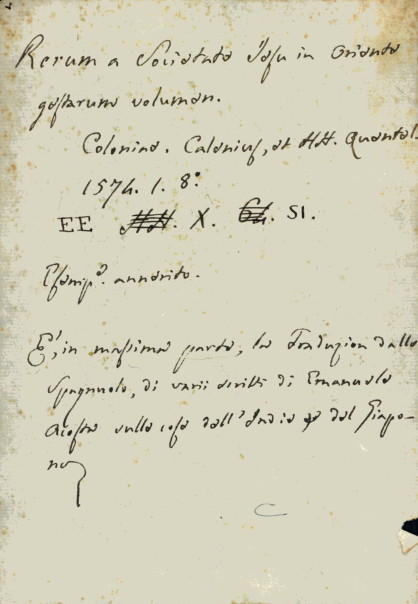 Rerum a Societate Jesu in Oriente
gestarum volumen.
Coloniae. Calenius, et HH. Quentel.
1574. 1. 8.°
EE X. SI.
Esemp.° annerito.
E', in massima parte, la Traduzion dallo
Spagnuolo, di varii scritti di Emanuele
Acosta sulle cose dell'Indie e del Giapo-
ne
C